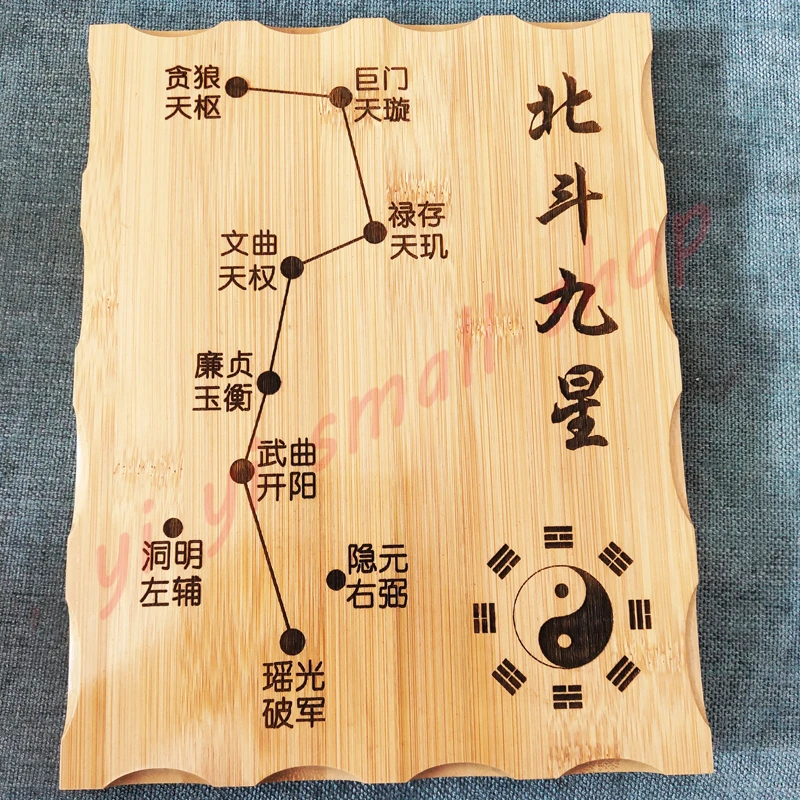 北斗九星
贪狼
天枢
巨门
天璇
禄存
天玑
文曲
天权
廉贞
玉衡
武曲
开阳
洞明
左辅
隐元
右弼
瑶光
破军
yiyi small shop